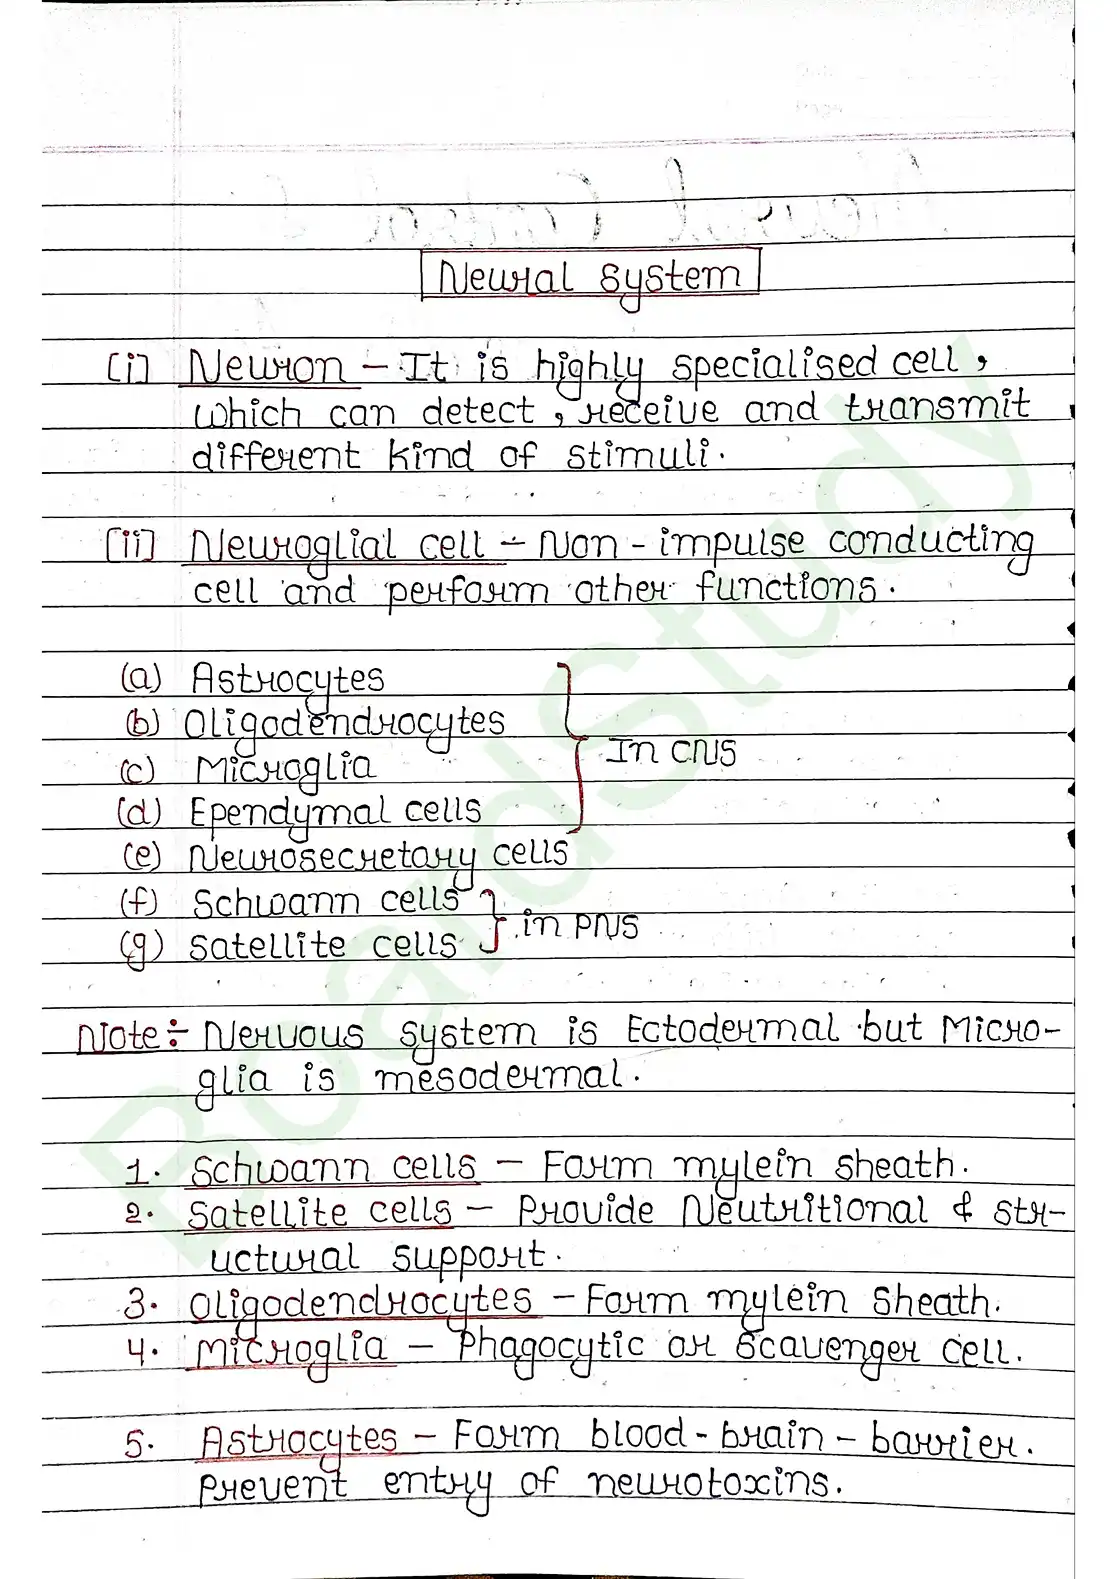 Neural System
(i) Neuron - It is highly specialised cell,
which can detect, receive and transmit
different kind of stimuli.
(ii) Neuroglial cell - Non-impulse conducting
cell and perform other functions.
(a) Astrocytes
(b) Oligodendrocytes
(c) Microglia
(d) Ependymal cells
In CNS
(e) Neurosecretary cells
(f) Schwann cells
(g) Satellite cells
in PNS
Note:- Nervous system is Ectodermal but Micro-
glia is mesodermal.
1. Schwann cells - Form mylein sheath.
2. Satellite cells - Provide Neutritional & str-
uctural support.
3. Oligodendrocytes - Form mylein sheath.
4. Microglia - Phagocytic or Scavenger cell.
5. Astrocytes - Form blood-brain-barrier.
Prevent entry of neurotoxins.
BoardStudy